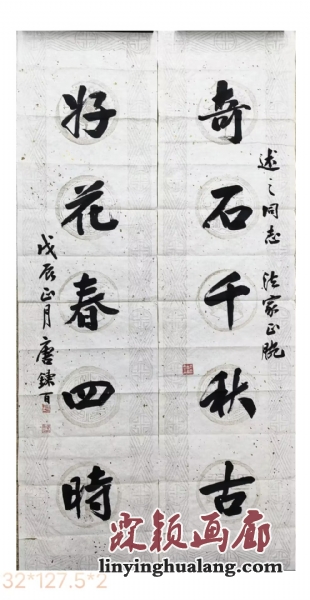 述之同志 法家正腕
奇石千秋古
好花春四時
戊辰正月 唐鏤百
霖颖画廊
linyinghualang.com
32*127.5*2